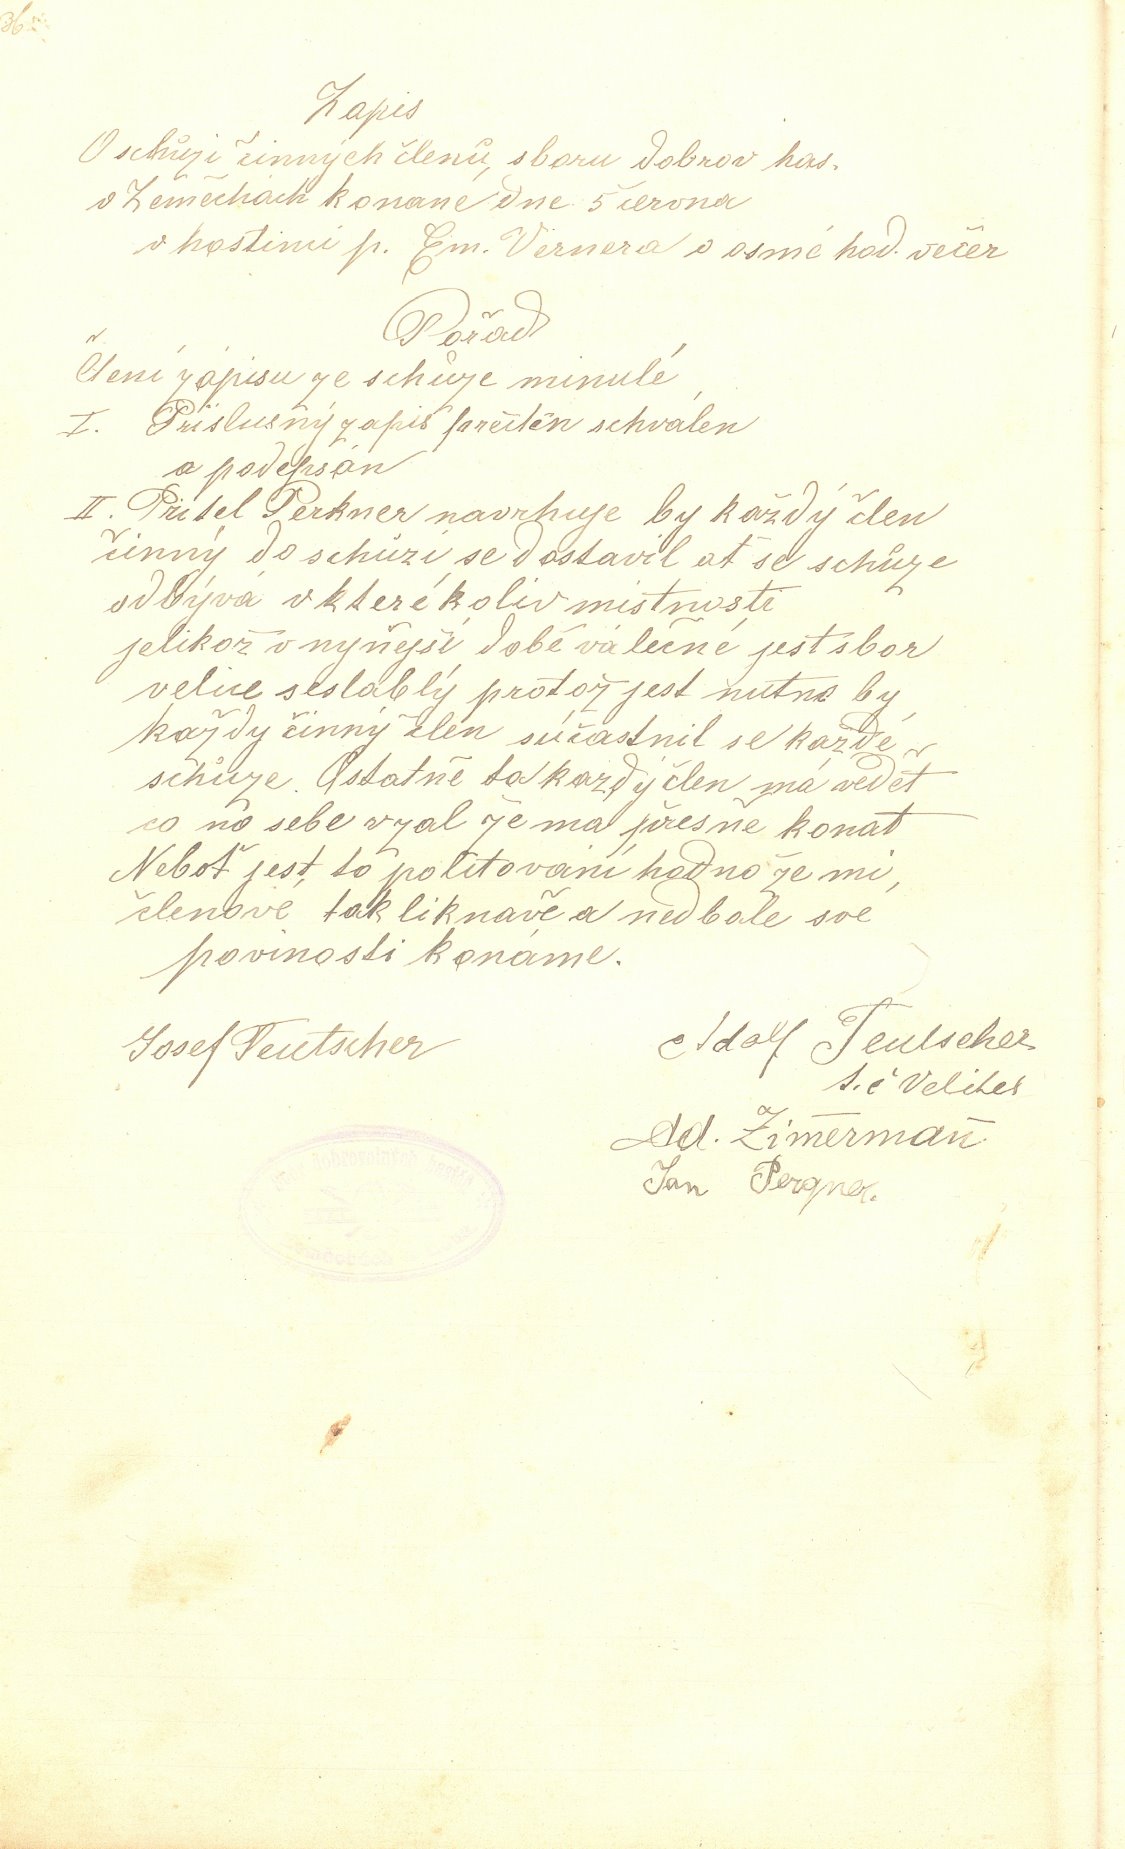 36
Zapis
O schůzi činných členů, sboru dobrov has.
v Zeměchách konané dne 5 června
v hostinci p. Em. Vernera o osmé hod. večer
Pořad
Čtení zápisu ze schůze minulé
I. Příslušný zapis přečtěn schválen
a podepsán
II. Přítel Perkner navrhuje by každý člen
činný do schůzí se dostavil ať se schůze
odbývá v kterékoliv místnosti
jelikož v nynější době válečné jest sbor
velice seslablý protož jest nutno by
každy činný člen súčastnil se každé
schůze. Ostatně ta každý člen má vědět
co na sebe vzal že ma přesně konat
Neboť jest to politování hodno že mi,
členové, tak liknavě a nedbale své
povinosti konáme.
Josef Teutscher
Adolf Teutscher
t. č Velitel
Ad. Zimermann
Jan Pergner.
dobrovolných hasičů